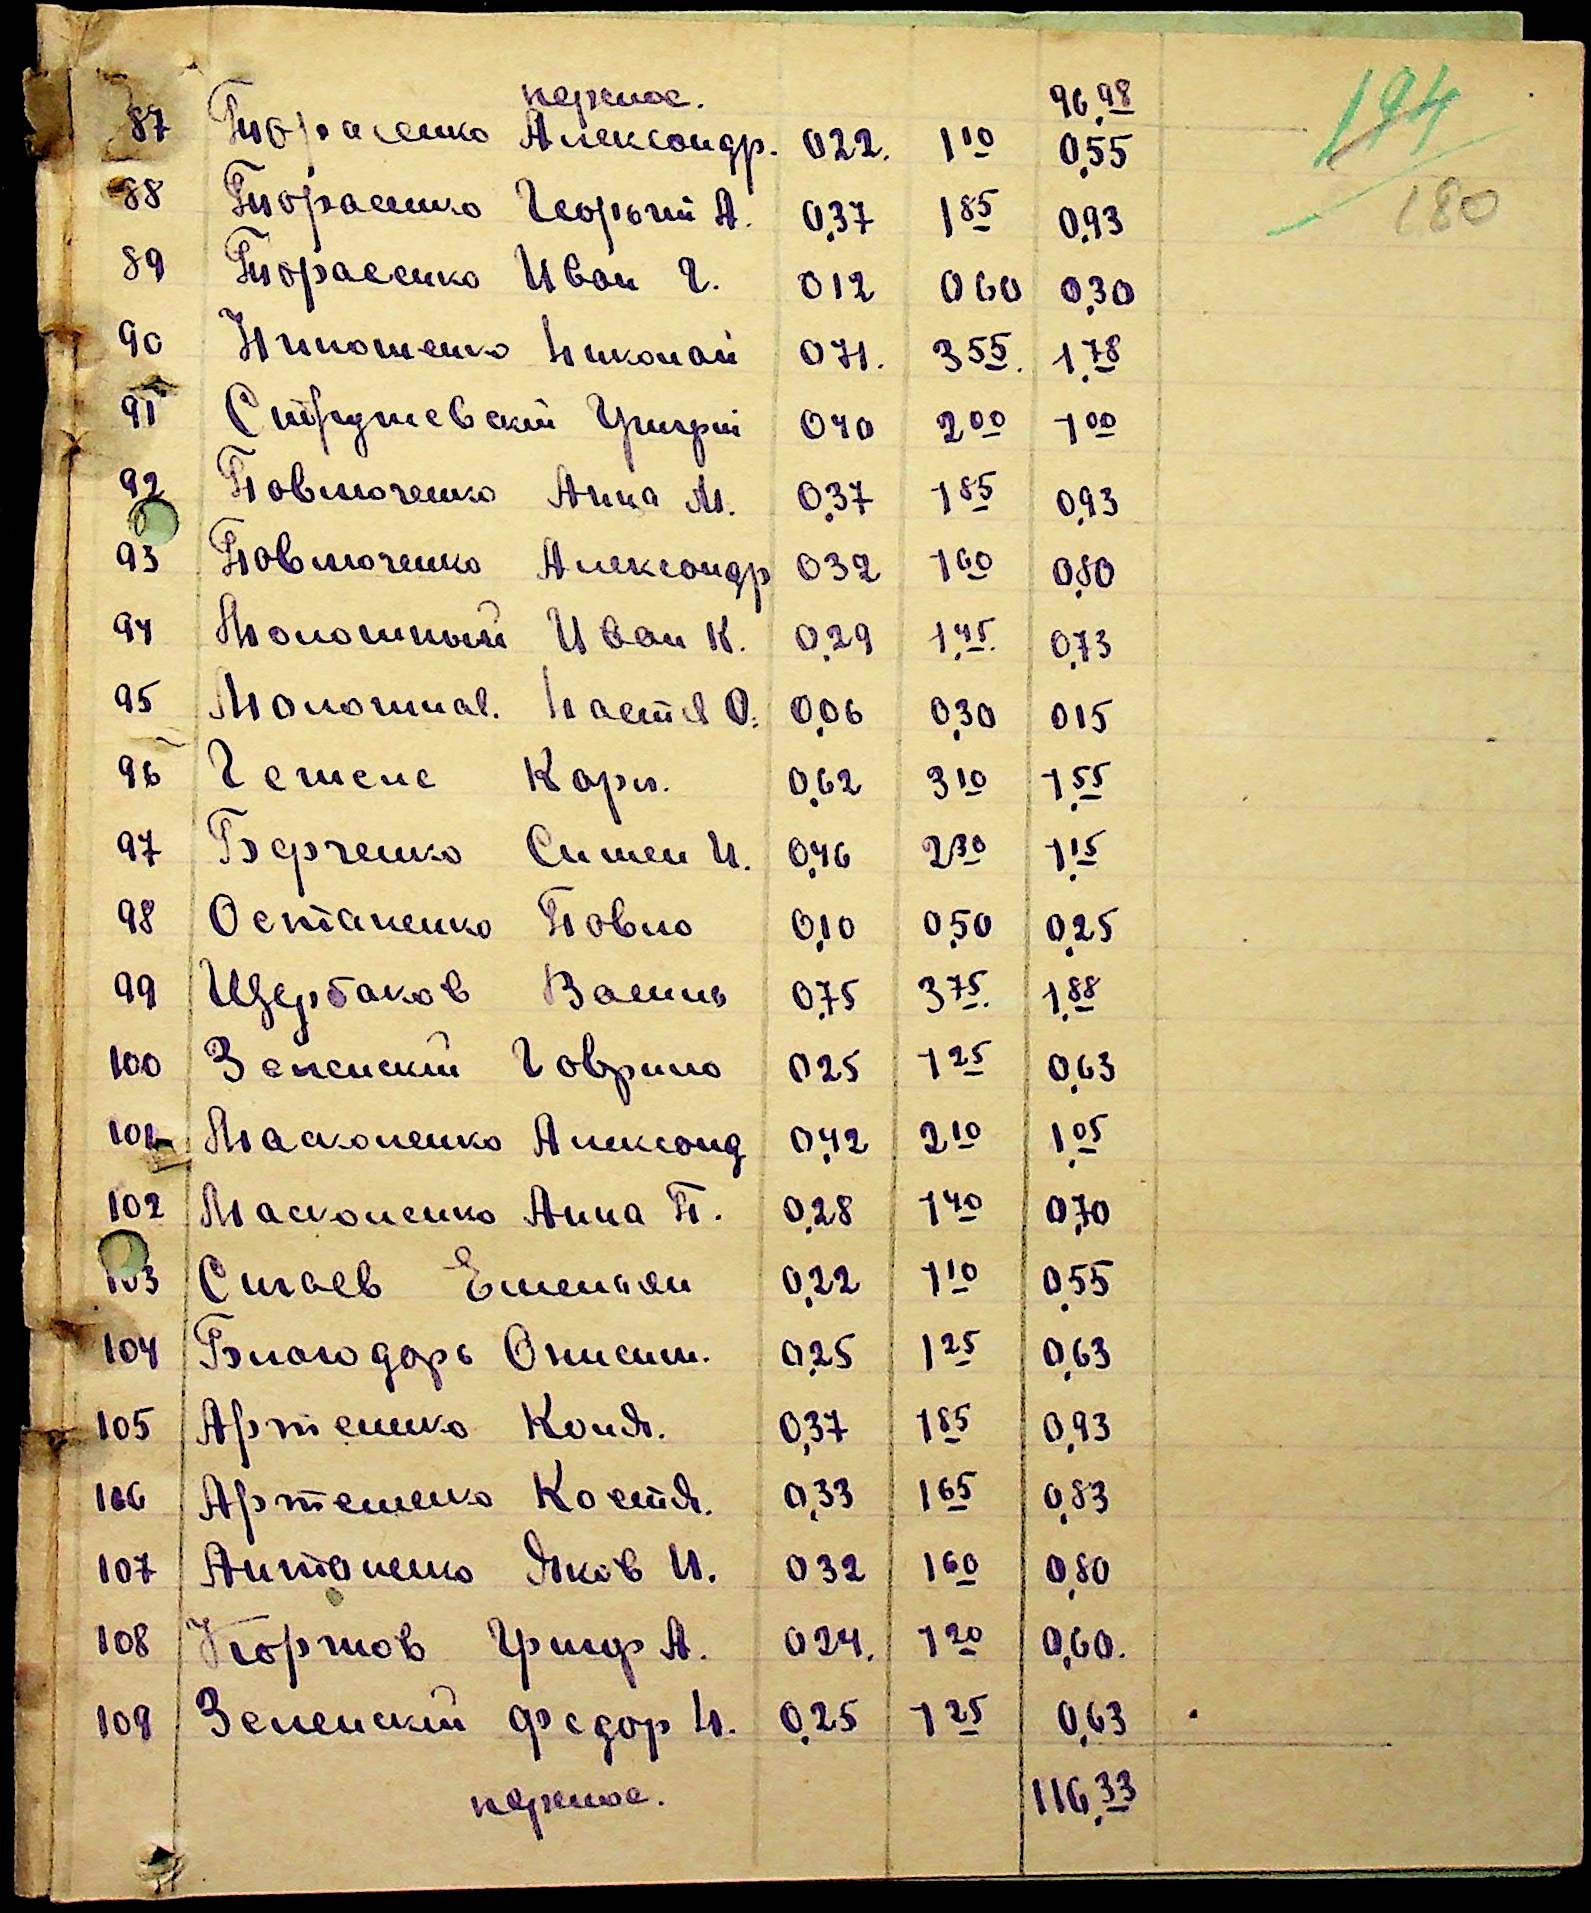 перенос. 96,98
194
180
87 Тарасенко Александр. 022. 1 10 0,55
88 Тарасенко Георгий А. 0,37 1 85 0,93
89 Тарасенко Иван Г. 012 0 60 0,30
90 Николай 071. 3 55. 1,78
91 Григрій 040 2 00 1 00
92 Павлюченко Анна М. 0,37 1 85 0,93
93 Павлюченко Александр 032 1 60 0,80
94 Молошный Иван К. 0,29 1,45. 0,73
95 Молошная. Настя О. 0,06 0,30 015
96 Карп. 0,62 3 10 1,55
97 Берченко Симен И. 0,46 2 30 1,15
98 Остапенко Павло 0,10 0,50 0,25
99 Щербаков Василь 0,75 3 75. 1,88
100 Зеленский Гаврило 025 1 25 0,63
101 Масколенко Александ 0,42 2 10 1,05
102 Масколенко Анна П. 0,28 1 40 0,70
103 Сигаев Емельян 0,22 1 10 0,55
104 Благодарь Онисим. 0,25 1 25 0,63
105 Артеменко Коля. 0,37 1 85 0,93
106 Артеменко Костя. 0,33 1 65 0,83
107 Антоненко Яков И. 032 1 60 0,80
108 Григор А. 024. 1 20 0,60.
109 Зеленский Федор Н. 0,25 1 25 0,63
перенос. 116,33